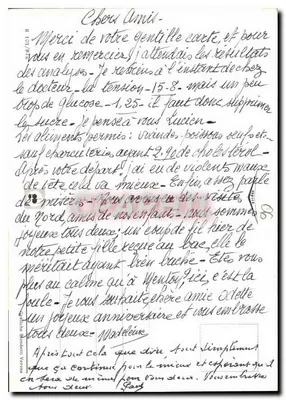 Chers Amis -
Merci de votre gentille carte, et pour
vous en remercier j'attendais les résultats
des analyses - Je reviens à l'instant de chez
le docteur - la tension - 15-8 - mais un peu
trop de glucose - 1,25 - il faut donc supprimer
le sucre - Je pense à vous Lucien -
Les aliments permis : viandes, poissons oeufs et
sauf charcuterie, ayant 2,90 de choléstérol -
Après votre départ j'ai eu de violents maux
de tête cela va mieux - Enfin assez parlé
de misères - Nous avons eu des visites
du Nord, amis de nos enfants - nous sommes
joyeux tous deux, un coup de fil hier de
notre petite fille reçue au bac, elle le
méritait ayant bien bûché - Êtes vous
plus au calme qu'à Menton, ici, c'est la
foule - Je vous souhaite, chère amie
un joyeux anniversaire et vous embrasse
tous deux - Madeleine
Après tout cela que dire, tout simplement
que ça continue pour le mieux et espérons qu'il
en sera de même pour vous deux.
tous deux